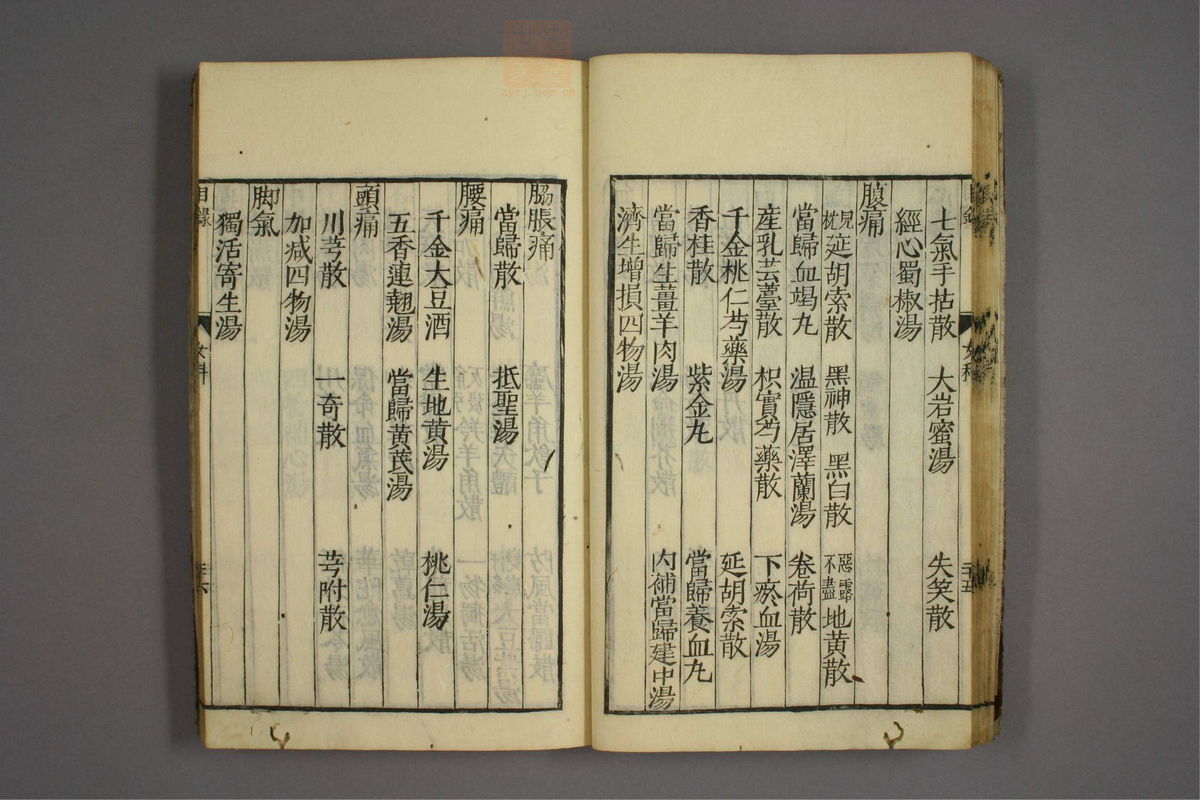 七氣手拈散 大岩蜜湯 失笑散
經心蜀椒湯
腹痛
見晛延胡索散 黑神散 黑白散 惡露不盡地黄散
當歸血竭丸 温隱居澤蘭湯 卷荷散
産乳芸薹散 枳實芍藥散 下瘀血湯
千金桃仁芍藥湯 延胡索散
香桂散 紫金丸 當歸養血丸
當歸生薑羊肉湯 内補當歸建中湯
濟生增損四物湯
脇脹痛
當歸散 抵聖湯
腰痛
千金大豆酒 生地黄湯 桃仁湯
五香連翹湯 當歸黄芪湯
頭痛
川芎散 一奇散 芎附散
加减四物湯
脚氣
獨活寄生湯
目錄 女科